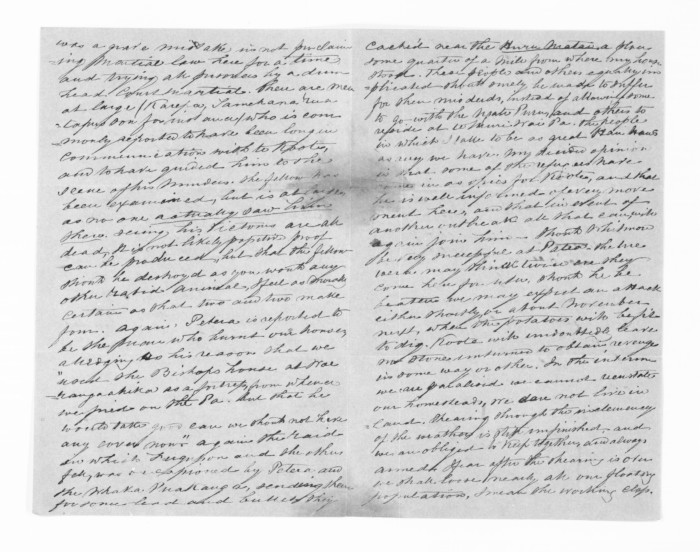 was a grave mistake in not proclaim
ing Martial law here for a time
and trying all prisoners by a drum
head Court Martial. There are men
at large (Karepa, Tamehana Rua
son for instance) who is com
monly reported to have been long in
Communication with te Kooti,
and to have guided him to the
scene of his Murders. The fellow has
been examined, but is at
as no one actually saw him
there, seeing his victims are all
dead, it is not likely positive proof
can be produced, but that the fellow
should be destroyed as you would any
other rabid Animal, I feel as
certain as that two and two make
four. Again. Petera is reported to
be the man who burnt our houses,
alledging as his reason that we
used the Bishops house at
as a fortress from whence
we fired on the Pa. but that he
would take care we should not have
any cover now. again the raid
in which Ferguson and the others
fell, was by Petera and
the sending them
for some lead and bullets they
cached near the a place
some quarter of a mile from where my house
stood. These people and others equally im
plicated that surely be made to suffer
for their misdeeds, instead of allowing some
to go with the and others to
reside at Pa. the people
in which I take to be as great
as any we have. My opinion
is that some of the have
come in as spies for Kooti, and that
he is well informed of every move
ment here, and that in event of
another outbreak all that can, will
again join him. Should Whitmore
be successful at the
may think twice ere they
come here for us, should he be
beaten we may expect an attack
either shortly or about November
next, when the potatoes will be fit
to dig. Koote will undoubtedly leave
no stone unturned to obtain revenge
in some way or other. In the interim
we are paralised we cannot reinstate
our homesteads, we dare not live in
land, shearing through the inclemency
of the weather is still unfinished, and
we are obliged to keep together and always
armed. I fear after the shearing is over
we shall loose nearly all our floating
population, I mean the working class.